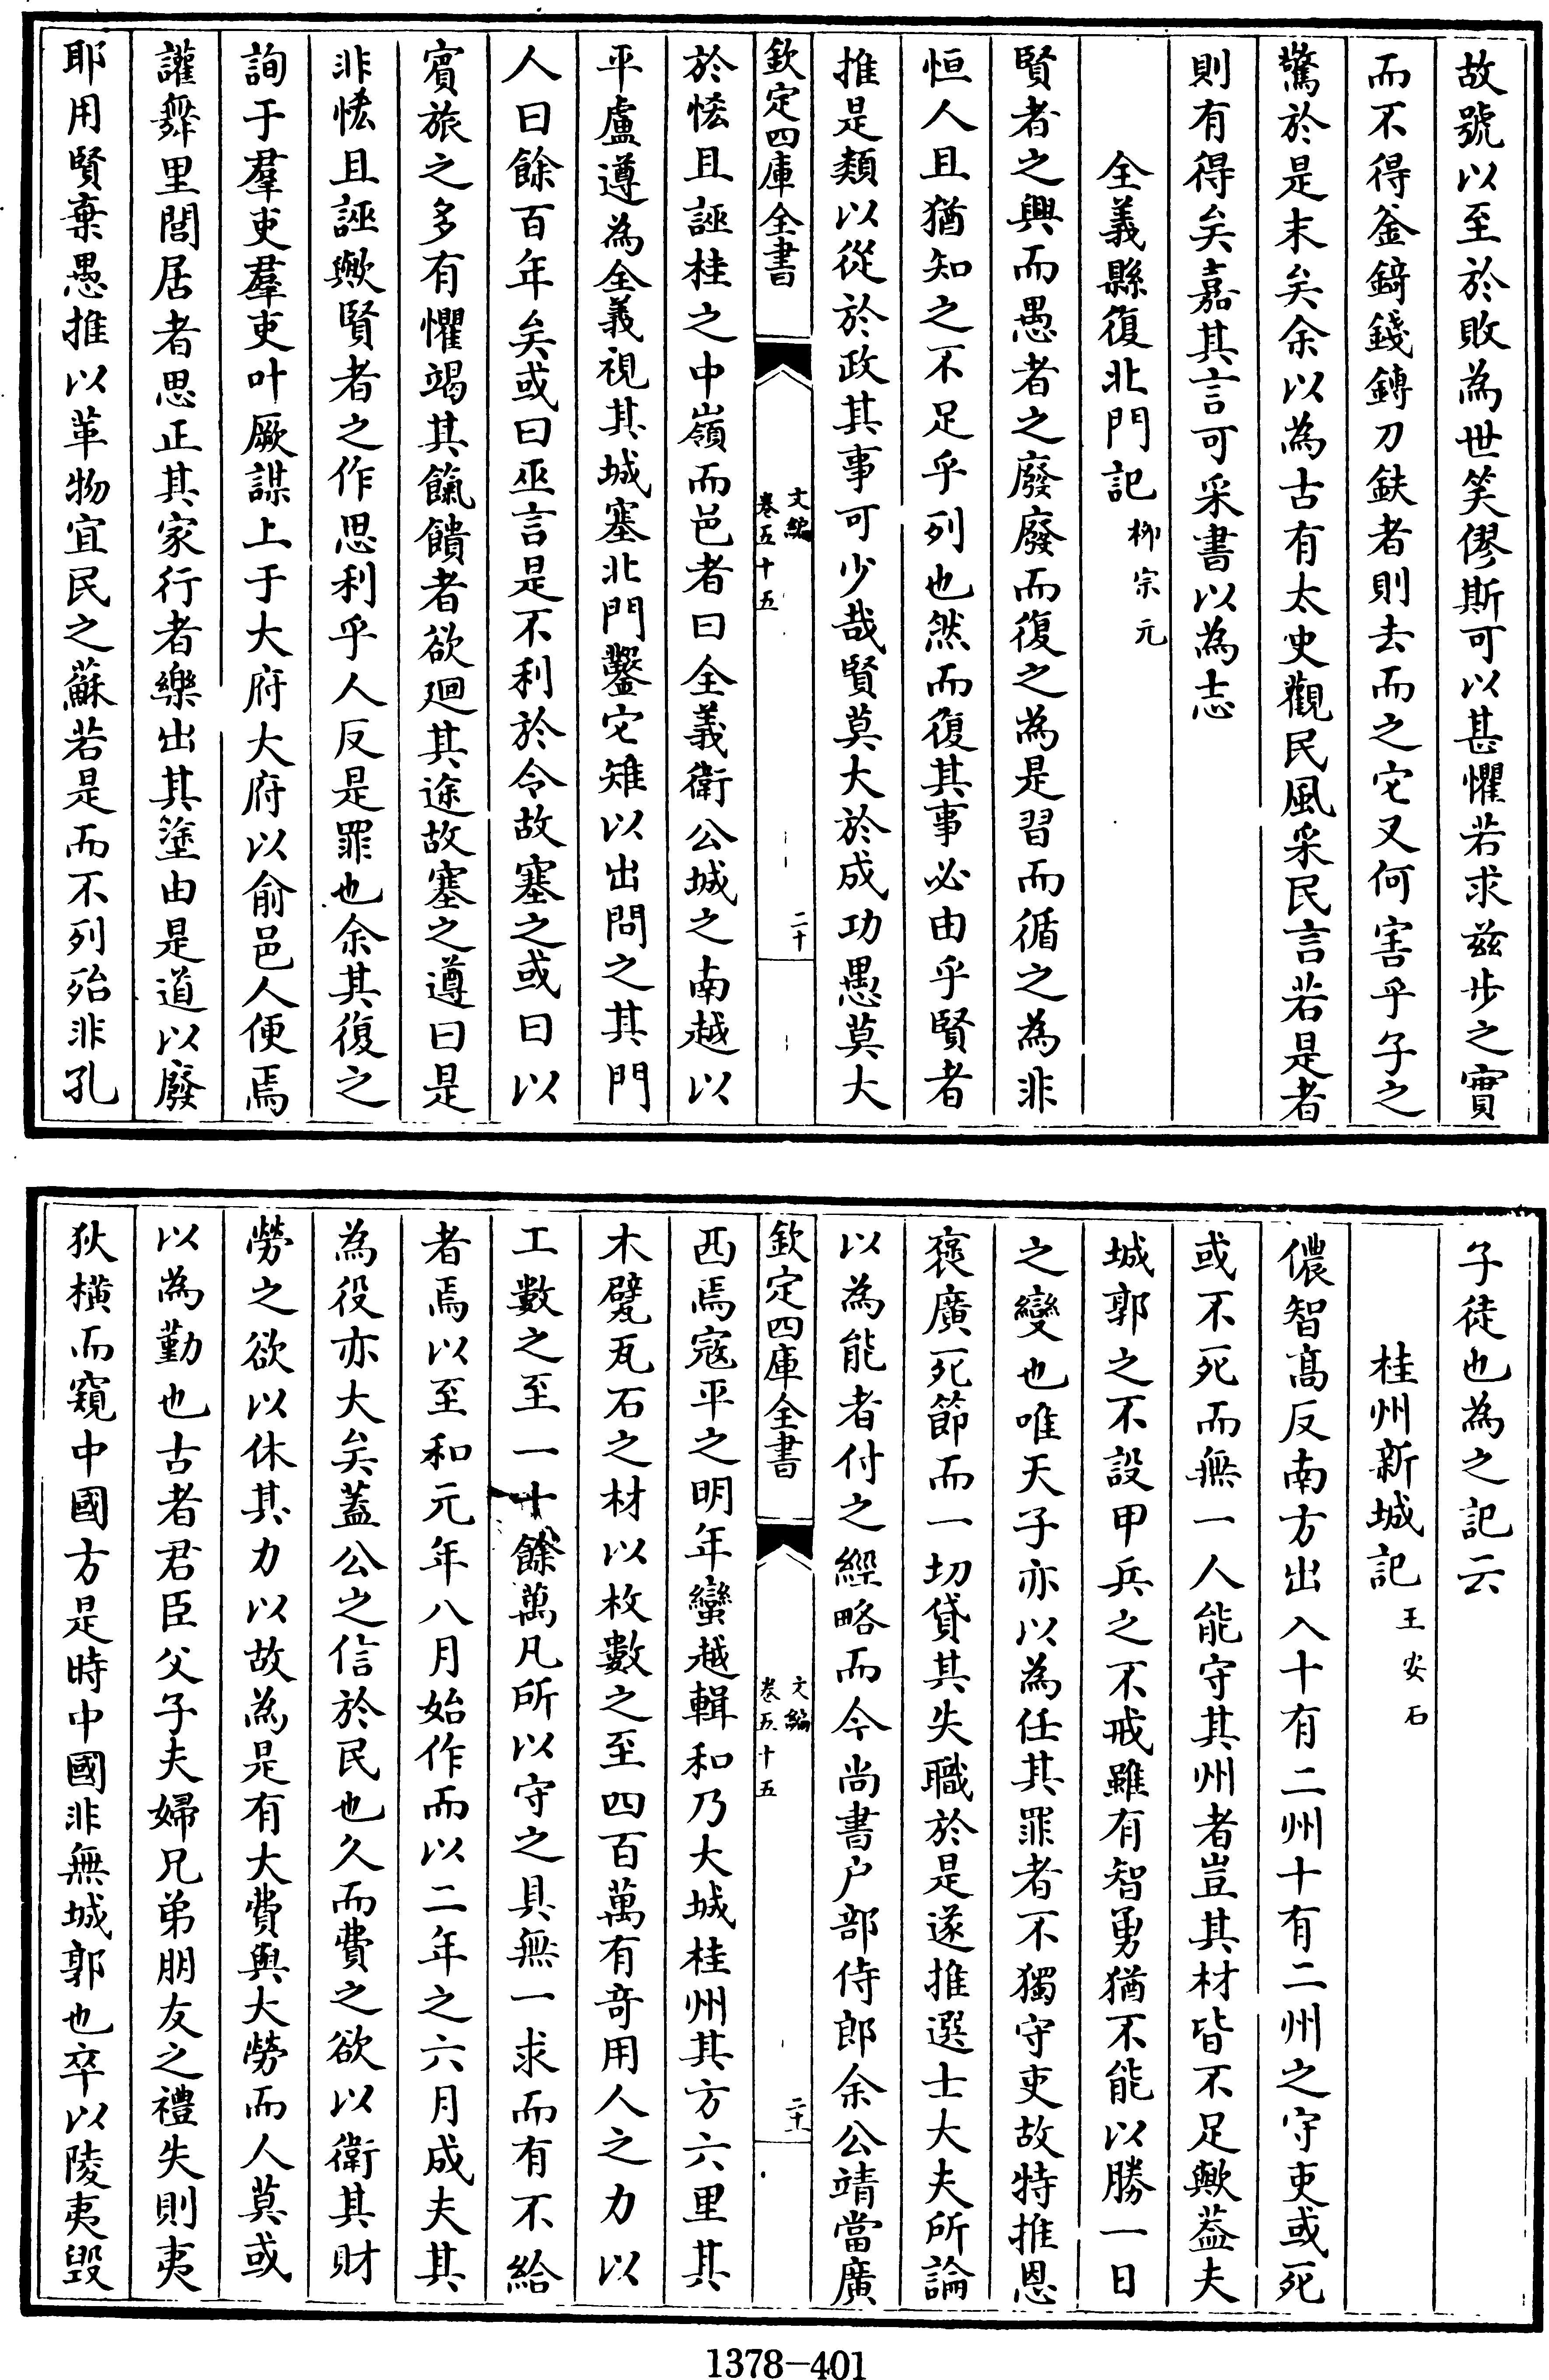 故號以至於敗為世笑僇斯可以甚懼若求兹步之實
而不得釜錡錢鎛刀鈇者則去而之它又何害乎子之
驚於是末矣余以為古有太史觀民風采民言若是者
則有得矣嘉其言可采書以為志
全義縣復北門記柳宗元
賢者之興而愚者之廢廢而復之為是習而循之為非
恒人且猶知之不足乎列也然而復其事必由乎賢者
推是類以從於政其事可少哉賢莫大於成功愚莫大
欽定四庫全書
文編
卷五十五
二十
於恡且誣桂之中嶺而邑者曰全義衛公城之南越以
平盧遵為全義視其城塞北門鑿它雉以出問之其門
人曰餘百年矣或曰巫言是不利於令故塞之或曰以
賓旅之多有懼竭其餼饋者欲迴其途故塞之遵曰是
非恡且誣歟賢者之作思利乎人反是罪也余其復之
詢于羣吏羣吏叶厥謀上于大府大府以俞邑人便焉
讙舞里閭居者思正其家行者樂出其塗由是道以廢
耶用賢棄愚推以革物宜民之蘇若是而不列殆非孔
子徒也為之記云
桂州新城記王安石
儂智高反南方出入十有二州十有二州之守吏或死
或不死而無一人能守其州者豈其材皆不足歟葢夫
城郭之不設甲兵之不戒雖有智勇猶不能以勝一日
之變也唯天子亦以為任其罪者不獨守吏故特推恩
褒廣死節而一切貸其失職於是遂推選士大夫所論
以為能者付之經略而今尚書户部侍郎余公靖當廣
欽定四庫全書
文編
卷五十五
二十一
西焉寇平之明年蠻越輯和乃大城桂州其方六里其
木甓瓦石之材以枚數之至四百萬有奇用人之力以
工數之至一十餘萬凡所以守之具無一求而有不給
者焉以至和元年八月始作而以二年之六月成夫其
為役亦大矣葢公之信於民也久而費之欲以衛其財
勞之欲以休其力以故為是有大費與大勞而人莫或
以為勤也古者君臣父子夫婦兄弟朋友之禮失則夷
狄橫而窺中國方是時中國非無城郭也卒以陵夷毀
1378-401